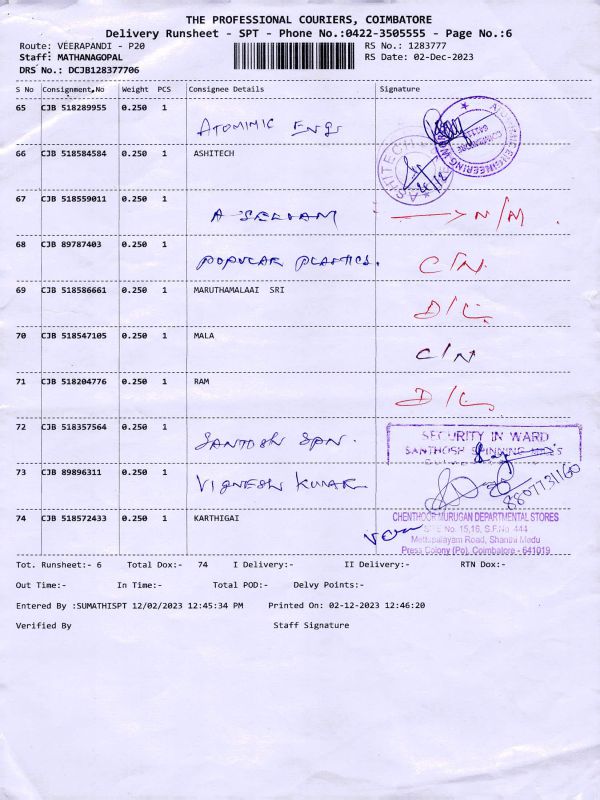 THE PROFESSIONAL COURIERS, COIMBATORE
Delivery Runsheet - SPT - Phone No.:0422-3505555 - Page No.:6
Route: VEERAPANDI - P20 RS No.: 1283777
Staff: MATHANAGOPAL RS Date: 02-Dec-2023
DRS No.: DCJB128377706
S No Consignment,No Weight PCS Consignee Details Signature
65 CJB 518289955 0.250 1
ATOMIMIC ENGG
ATOMIMIC ENGINEERING WORKS
66 CJB 518584584 0.250 1 ASHITECH
ASHITECH
67 CJB 518559011 0.250 1
A SELVAM N/M
68 CJB 89787403 0.250 1
POPULAR PLASTICS. C/N.
69 CJB 518586661 0.250 1 MARUTHAMALAAI SRI
D/L
70 CJB 518547105 0.250 1 MALA
C/N
71 CJB 518204776 0.250 1 RAM
D/L
72 CJB 518357564 0.250 1
SANTOSH SPN.
SECURITY IN WARD
SANTHOSH SPINNING MILLS
73 CJB 89896311 0.250 1
VIGNESH KUMAR
8807731160
74 CJB 518572433 0.250 1 KARTHIGAI
CHENTHOOR MURUGAN DEPARTMENTAL STORES
No. 15,16, S.F.No. 444
Mettupalayam Road, Shanthi Medu
Press Colony (Po), Coimbatore - 641019
Tot. Runsheet:- 6 Total Dox:- 74 I Delivery:- II Delivery:- RTN Dox:-
Out Time:- In Time:- Total POD:- Delvy Points:-
Entered By :SUMATHISPT 12/02/2023 12:45:34 PM Printed On: 02-12-2023 12:46:20
Verified By Staff Signature